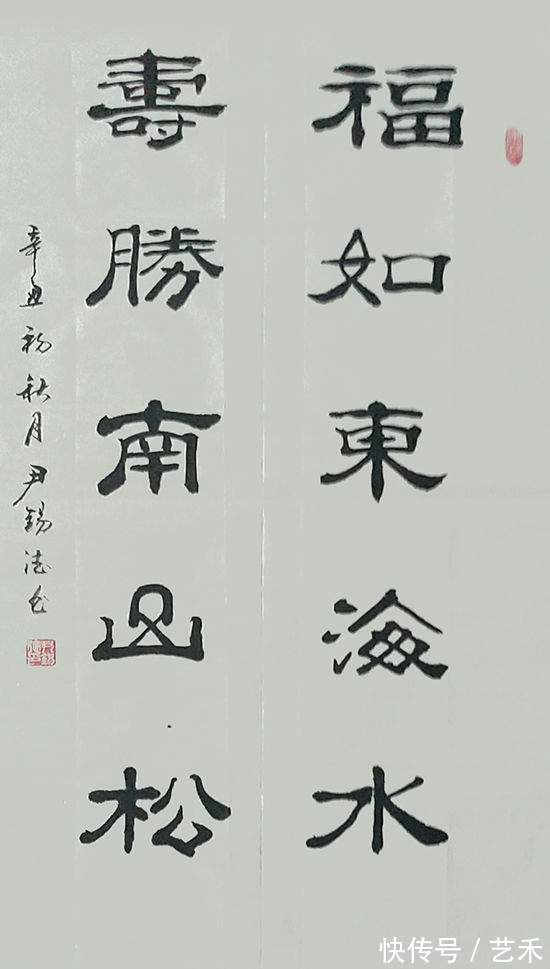 福如東海水
壽勝南山松
辛丑初秋月尹錫德书
快传号/艺禾